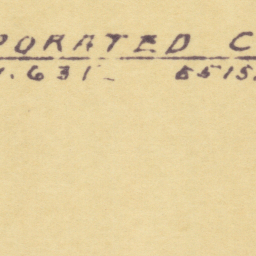 PORATED C
1.631 5515